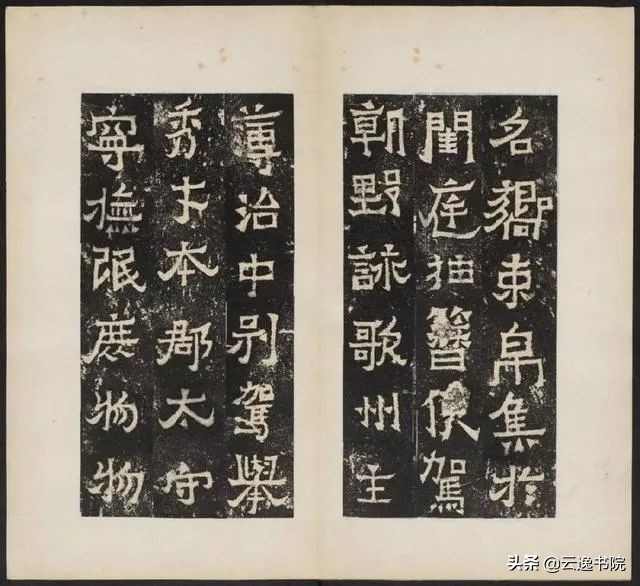 名嚮束帛集於
閨庭抽簪俟駕
朝野詠歌州主
簿治中別駕舉
秀才本郡太守
寧撫氓庶物物
头条 @云逸书院